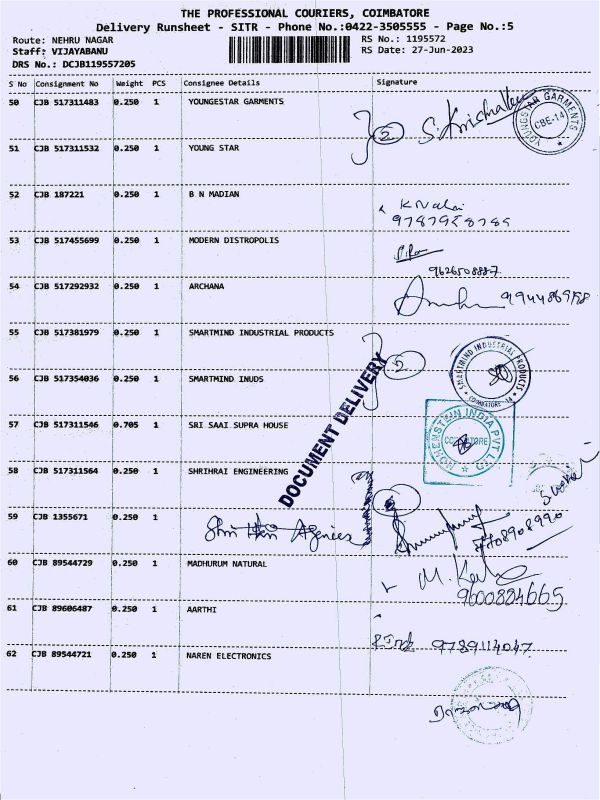 THE PROFESSIONAL COURIERS, COIMBATORE
Delivery Runsheet - SITR - Phone No.:0422-3505555 - Page No.:5
Route: NEHRU NAGAR RS No.: 1195572
Staff: VIJAYABANU RS Date: 27-Jun-2023
DRS No.: DCJB119557205
S No Consignment No Weight PCS Consignee Details Signature
50 CJB 517311483 0.250 1 YOUNGESTAR GARMENTS
2
YOUNGSTAR GARMENTS CBE-14
51 CJB 517311532 0.250 1 YOUNG STAR
52 CJB 187221 0.250 1 B N MADIAN
53 CJB 517455699 0.250 1 MODERN DISTROPOLIS
54 CJB 517292932 0.250 1 ARCHANA
55 CJB 517381979 0.250 1 SMARTMIND INDUSTRIAL PRODUCTS
SMARTMIND INDUSTRIAL PRODUCTS COIMBATORE-14
56 CJB 517354036 0.250 1 SMARTMIND INUDS
DOCUMENT DELIVERY
57 CJB 517311546 0.705 1 SRI SAAI SUPRA HOUSE
HOHENSTEIN INDIA PVT LTD
58 CJB 517311564 0.250 1 SHRIHRAI ENGINEERING
59 CJB 1355671 0.250 1
Shri Hari Agencies
7708908990
60 CJB 89544729 0.250 1 MADHURUM NATURAL
9600884665
61 CJB 89606487 0.250 1 AARTHI
9789114047
62 CJB 89544721 0.250 1 NAREN ELECTRONICS